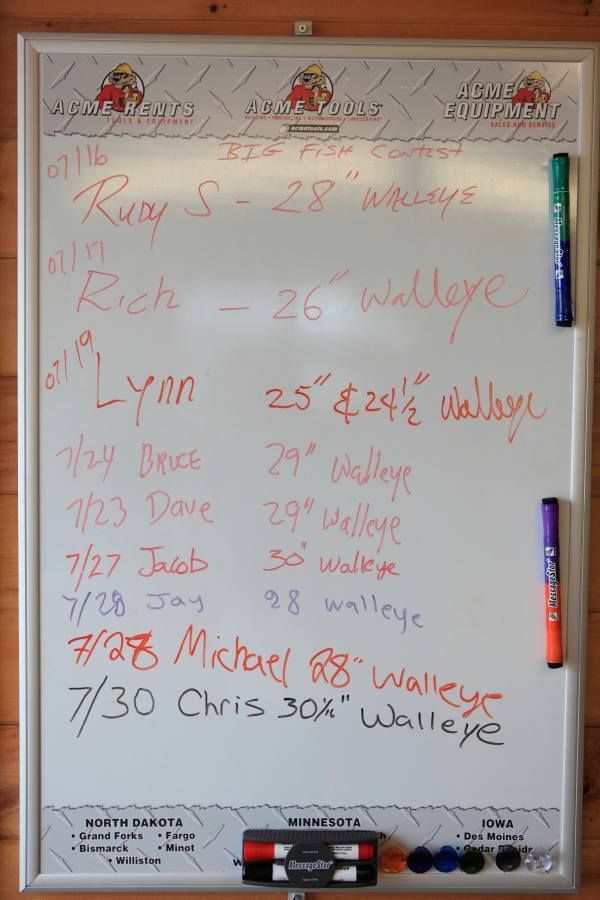 ACME RENTS
TOOLS & EQUIPMENT
ACME TOOLS
acmetools.com
ACME EQUIPMENT
SALES AND SERVICE
BIG FISH CONTEST
07/16
Rudy S - 28" WALLEYE
07/17
Rich - 26" Walleye
07/19
Lynn 25" & 24 1/2" Walleye
7/24 BRUCE 29" Walleye
7/23 Dave 29" Walleye
7/27 Jacob 30" Walleye
7/28 Jay 28 walleye
7/28 Michael 28" Walleye
7/30 Chris 30 1/16" Walleye
MessageStor
MessageStor
NORTH DAKOTA
• Grand Forks • Fargo
• Bismarck • Minot
• Williston
MINNESOTA
IOWA
• Des Moines
• Cedar Rapids
MessageStor